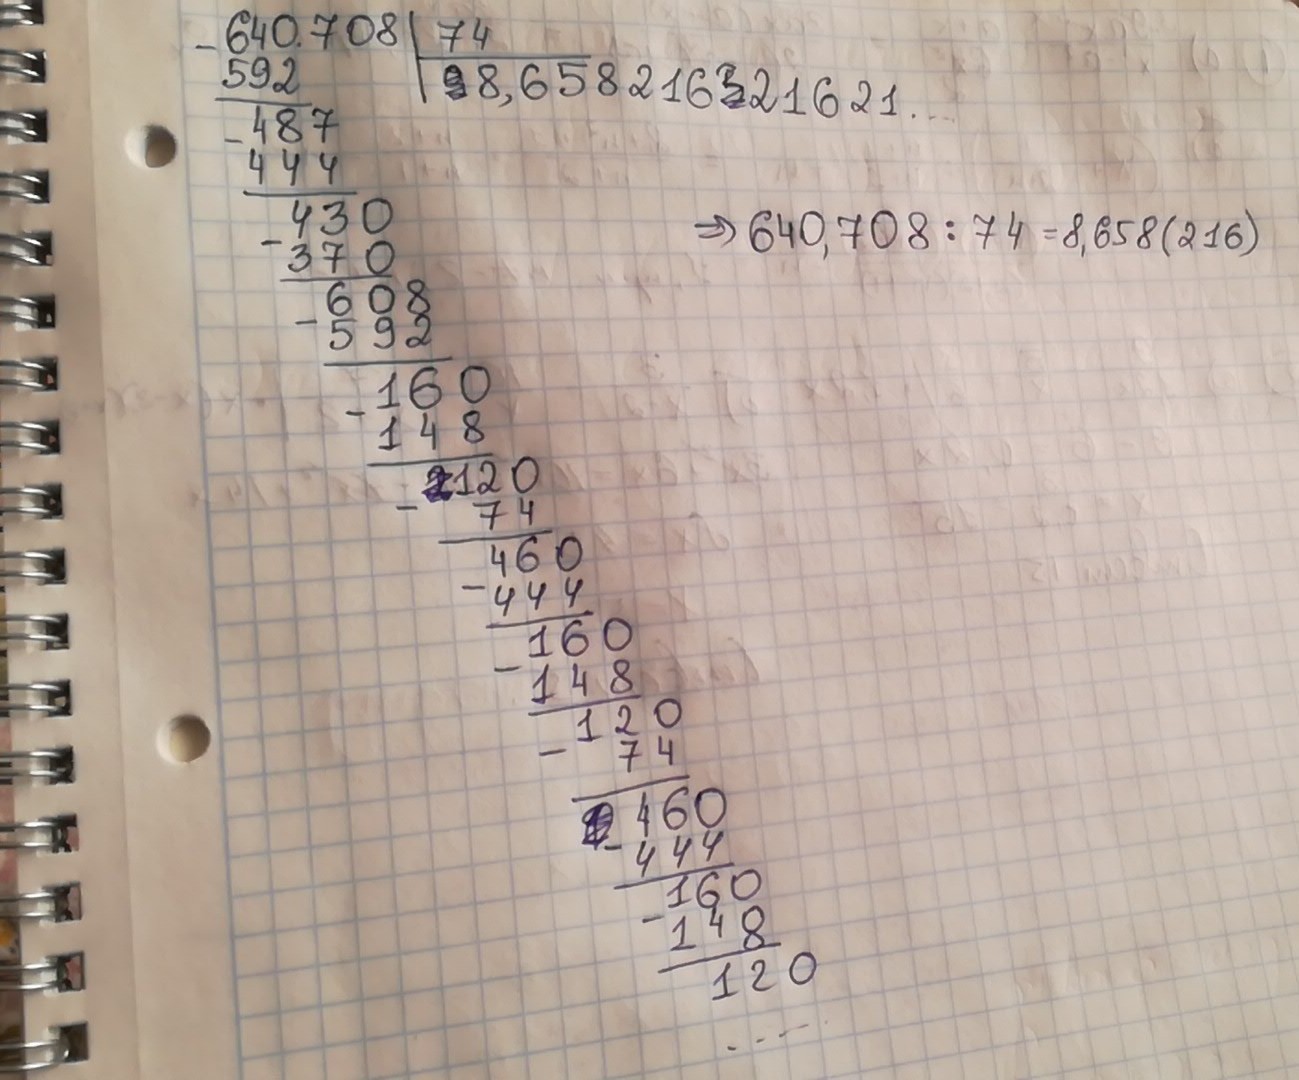 - 640.708 | 74
592 | 8,65821621621....
- 487
444
- 430
370
- 608
592
- 160
148
- 120
74
460
- 444
160
- 148
120
- 74
460
- 444
160
- 148
120
....
⇒ 640,708 : 74 = 8,658(216)